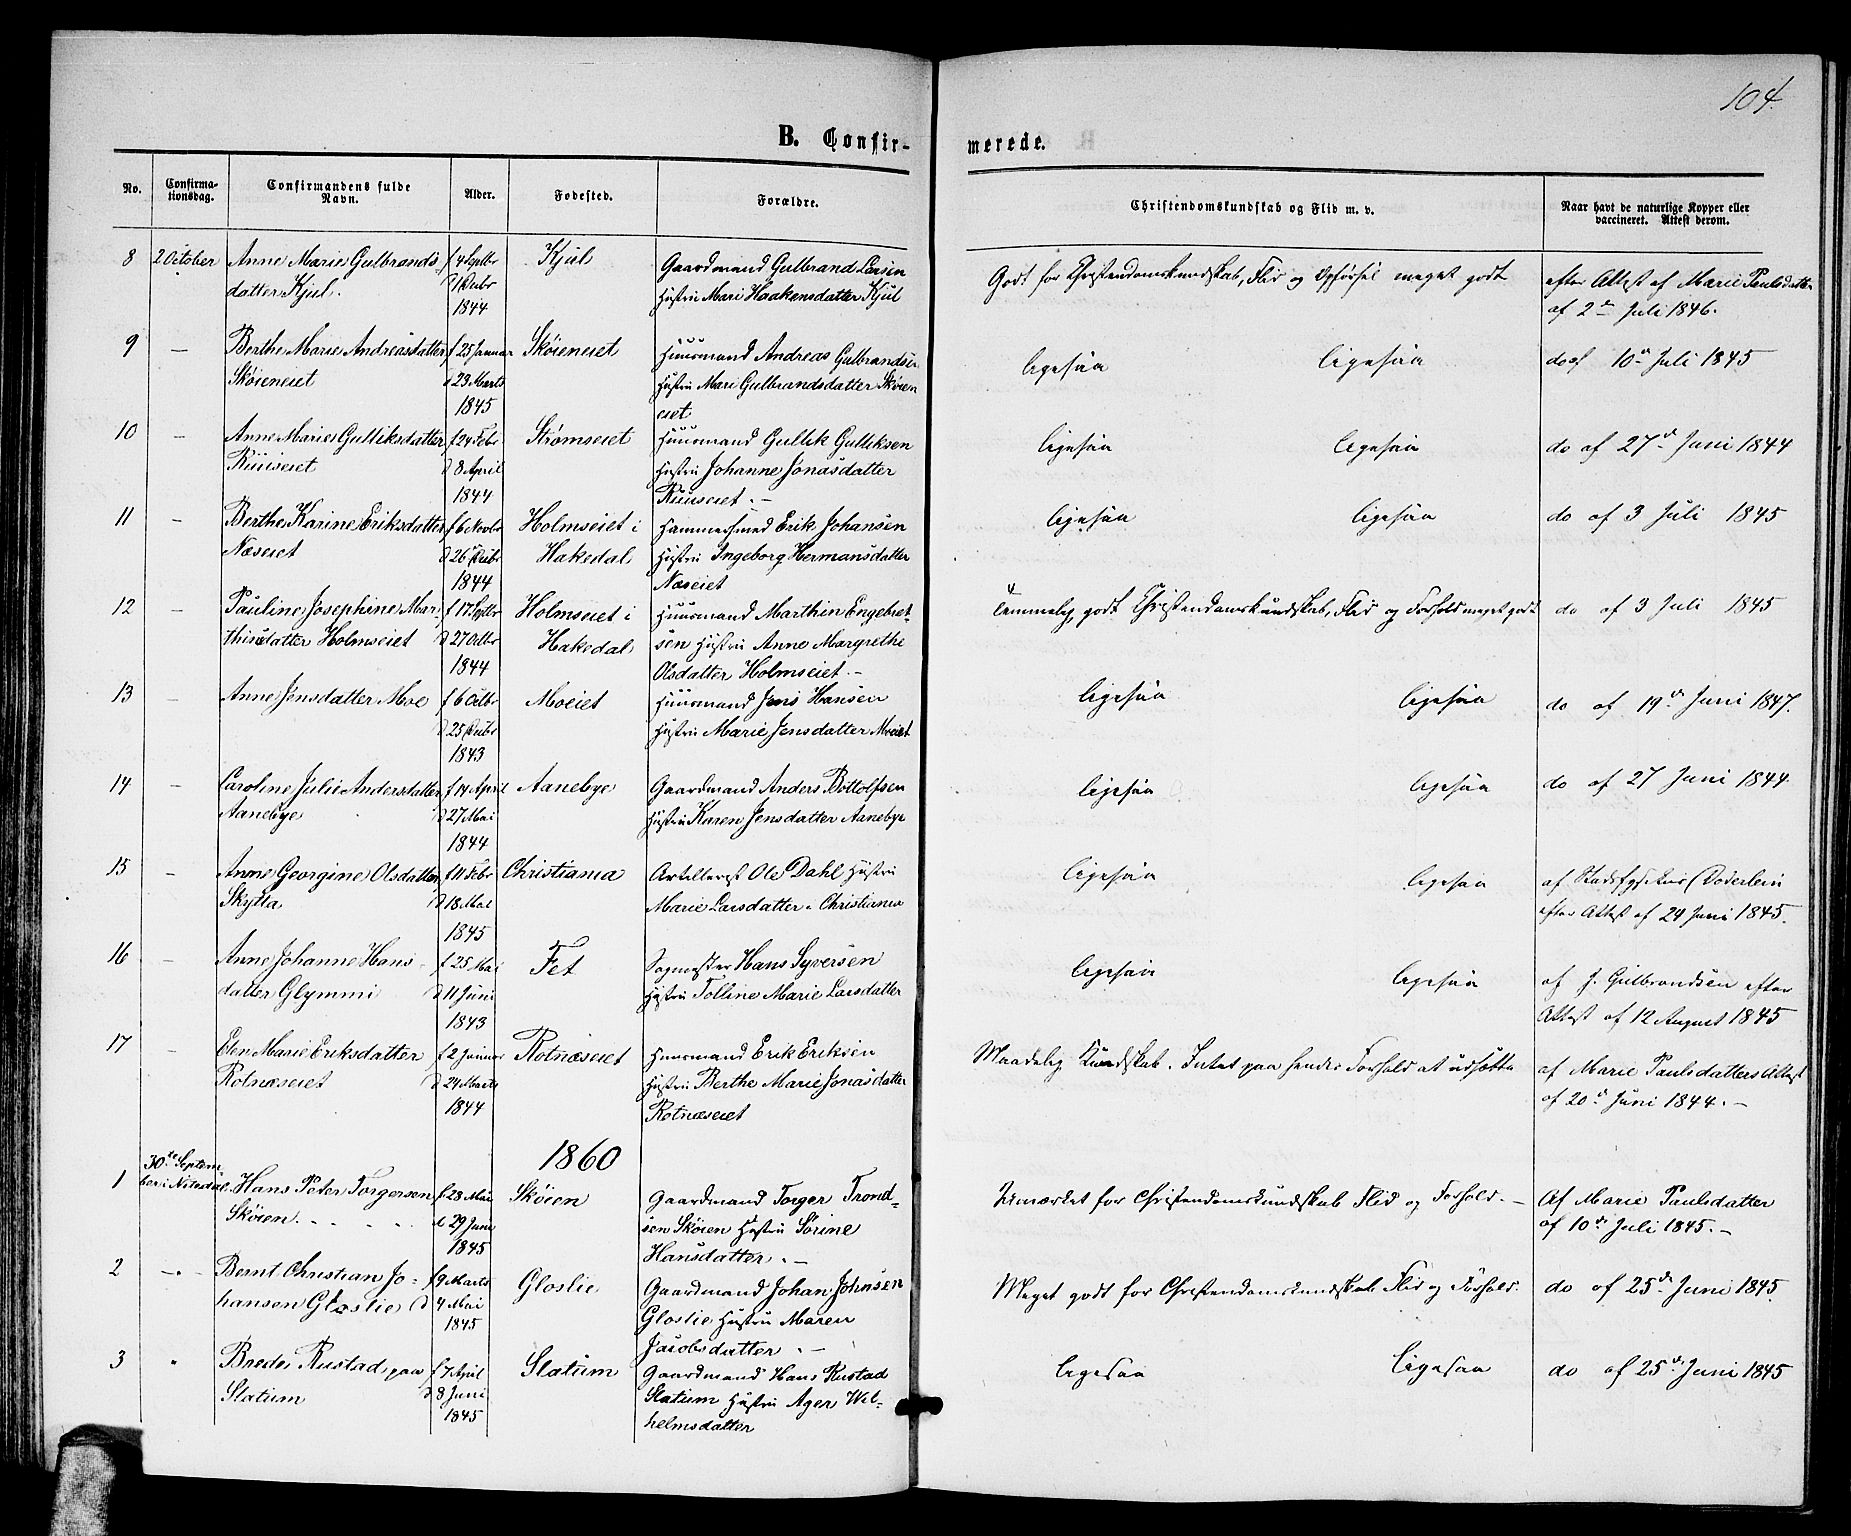 104.
B. Confir-
merede.
No.
Confirma-
tionsdag.
Confirmandens fulde
Navn.
Alder.
Fødested.
Forældre.
Christendomskundskab og Flid m. v.
Naar havt de naturlige Kopper eller
vaccineret. Attest derom.
8 2 October Anne Marie Gulbrands- f 4 Septbr Kjul Gaardmand Gulbrand Larsen Godt for Christendomskundskab, Flid og Opførsel meget godt efter Attest af Marie Paulsdatter
datter Kjul. Hustru Mari Haakensdatter Kjul af 2den Juli 1846.
1844
9 — Berthe Marie Andreasdatter f 25 Januar Skøieneiet Huusmand Andreas Gulbrandsen ligesaa ligesaa do af 10de Juli 1845
Skøieneiet d 23 Marts Hustru Mari Gulbrandsdatter Skøien
1845 eiet
10 — Anne Marie Gulliksdatter f 24 Febr Strømseiet Huusmand Gullik Gulliksen ligesaa ligesaa do af 27de Juni 1844
Ruuseiet d 8 April Hustru Johanne Jonasdatter
1844 Ruuseiet. —
11 — Berthe Karine Eriksdatter f 6 Novbr Holmseiet i Hammersmed Erik Johansen ligesaa ligesaa do af 3 Juli 1845
Næseiet d 26 Hakedal Hustru Ingeborg Hermansdatter
1844 Næseiet
12 — Pauline Josephine Mar- f 17 Septbr Holmseiet i Huusmand Marthin Engebret- Temmelig godt Christendomskundskab, Flid og Forhold meget godt do af 3 Juli 1845
thinsdatter Holmseiet d 27 Octbr Hakedal sen Hustru Anne Margrethe
1844 Olsdatter Holmseiet. —
13 — Anne Jensdatter Moe f 6 Octbr Moeiet Huusmand Jens Hansen ligesaa ligesaa do af 19de Juni 1847.
d 25 Hustru Marie Jensdatter Moeiet
1843
14 — Caroline Julie Andersdatter f 14 April Aanebye Gaardmand Anders Bottolfsen ligesaa ligesaa do af 27 Juni 1844.
Aanebye d 27 Mai Hustru Karen Jensdatter Aanebye
1844
15 — Anne Georgine Olsdatter f 11 Febr Christiania Artillerist Ole Dahl Hustru ligesaa ligesaa af Stadsfysikus Doderlein
Skytta d 18 Mai Marie Larsdatter. Christiania efter Attest af 24 Juni 1845.
1845
16 — Anne Johanne Hans- f 25 Mai Fet Sagmester Hans Syversen ligesaa ligesaa af J. Gulbrandsen efter
datter Glymmi d 11 Juni Hustru Tolline Marie Larsdatter Attest af 12 August 1845
1843
17 — Elen Marie Eriksdatter f 2 Januar Rotnæseiet Huusmand Erik Eriksen Maadelig Kundskab. Intet paa hendes Forhold at udsætte af Marie Paulsdatters Attest
Rotnæseiet d 24 Marts Hustru Berthe Marie Jonasdatter af 20de Juni 1844. —
1844 Rotnæseiet
1860
30te Septem-
1 ber i Nitedal. Hans Peter Torgersen f. 23 Mai Skøien Gaardmand Torger Trond- Udmærket for Christendomskundskab Flid og Forhold. — Af Marie Paulsdatter
Skøien. . . . . d 29 Juni sen Skøien Hustru Sørine af 10de Juli 1845. —
1845 Hansdatter. —
2 —"— Bernt Christian Jo- f 9 Marts Gloslie Gaardmand Johan Johnsen Meget godt for Christendomskundskab Flid og Forhold. do af 25de Juni 1845.
hansen Gloslie d 4 Mai Gloslie Hustru Maren
1845 Jacobsdatter. —
3 " Brede Rustad paa f 7 April Slatum Gaardmand Hans Rustad ligesaa ligesaa do af 25de Juni 1845
Slatum d 8 Juni Slatum Hustru Ager Wil-
1845 helmsdatter